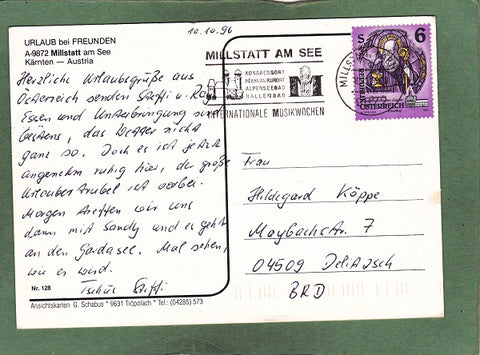 10.10.96
URLAUB bei FREUNDEN
A-9872 Millstatt am See
Kärnten — Austria
Herzliche Urlaubsgrüße aus
Österreich senden Steffi u.
Essen und Unterbringung sind
bestens, das Wetter nicht
ganz so. Doch es ist jetzt
angenehm ruhig hier, der große
Urlaubertrubel ist vorbei.
Morgen treffen wir uns
dann mit Sandy und es geht
an den Gardasee. Mal sehen,
wie es wird.
Tschüß Steffi
Nr. 128
Ansichtskarten G. Schabus * 9631 Tröpolach * Tel.: (04285) 573
MILLSTATT AM SEE
KONGRESSORT
ALPENSEEBAD
HALLENBAD
INTERNATIONALE MUSIKWOCHEN
MILLST
S 6
REPUBLIK
ÖSTERREICH
Frau
Hildegard Köppe
Maybachstr. 7
04509 Delitzsch
BRD